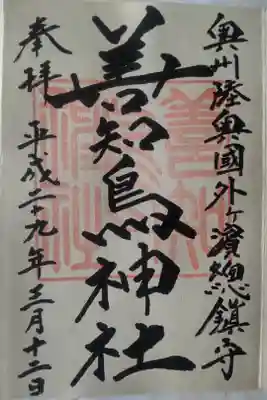 奥州陸奥國外ヶ濱總鎮守
善知鳥神社
奉拝 平成二十九年三月十二日